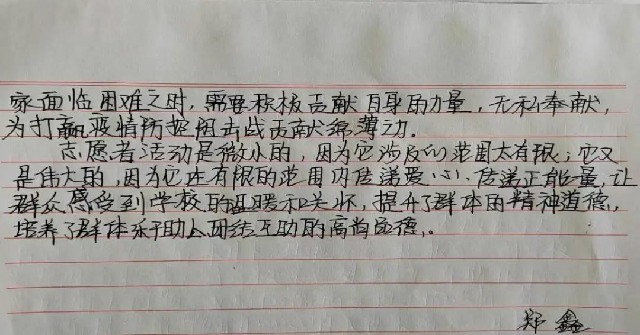 家面临困难之时，需要积极贡献自身的力量，无私奉献，
为打赢疫情防控阻击战贡献绵薄之力。
志愿者活动是微小的，因为它涉及的范围太有限；它又
是伟大的，因为它在有限的范围内传递爱心、传递正能量，让
群众感受到学校的温暖和关怀，提升了群体的精神道德，
培养了群体乐于助人团结互助的高尚品德，。
郑鑫